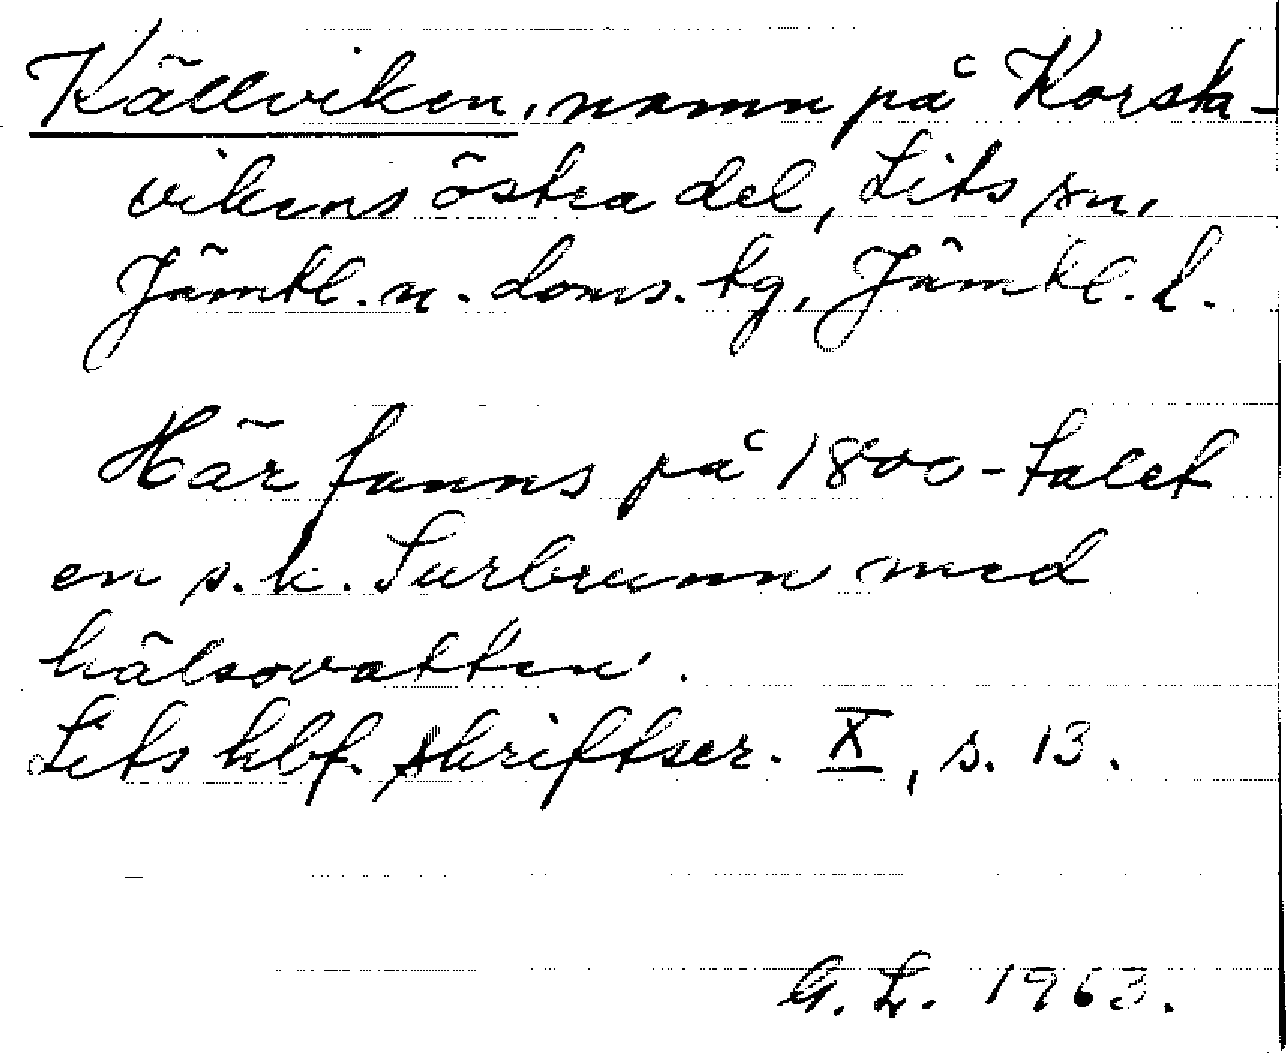 Källviken, namn på Korsta-
vikens östra del, Lits sn,
Jämtl. n. doms. tg, Jämtl. l.
Här fanns på 1800-talet
en s.k. Surbrunn med
hälsovatten.
Lits hbf. skriftser. X, s. 13.
G. L. 1963.